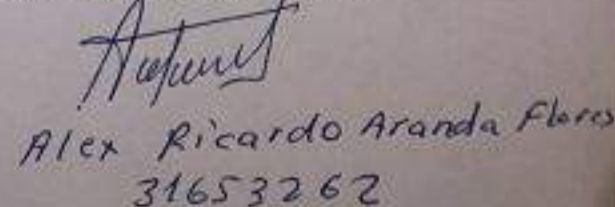 Alex Ricardo Aranda Flores
31653262